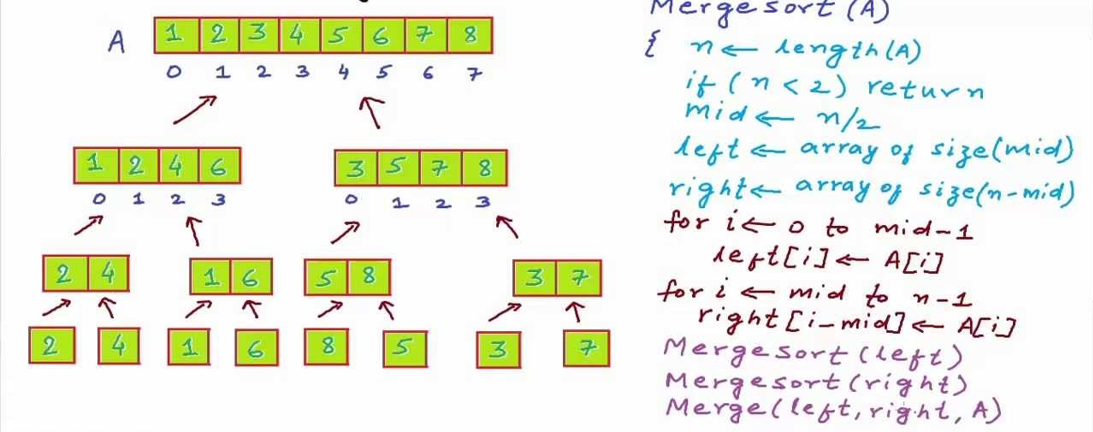 Mergesort(A)
A 1 2 3 4 5 6 7 8
0 1 2 3 4 5 6 7
1 2 4 6
0 1 2 3
3 5 7 8
0 1 2 3
2 4
1 6
5 8
3 7
2 4 1 6 8 5 3 7
{ n ← length(A)
if (n < 2) return n
mid ← n/2
left ← array of size(mid)
right ← array of size(n-mid)
for i ← 0 to mid-1
left[i] ← A[i]
for i ← mid to n-1
right[i-mid] ← A[i]
Mergesort(left)
Mergesort(right)
Merge(left, right, A)